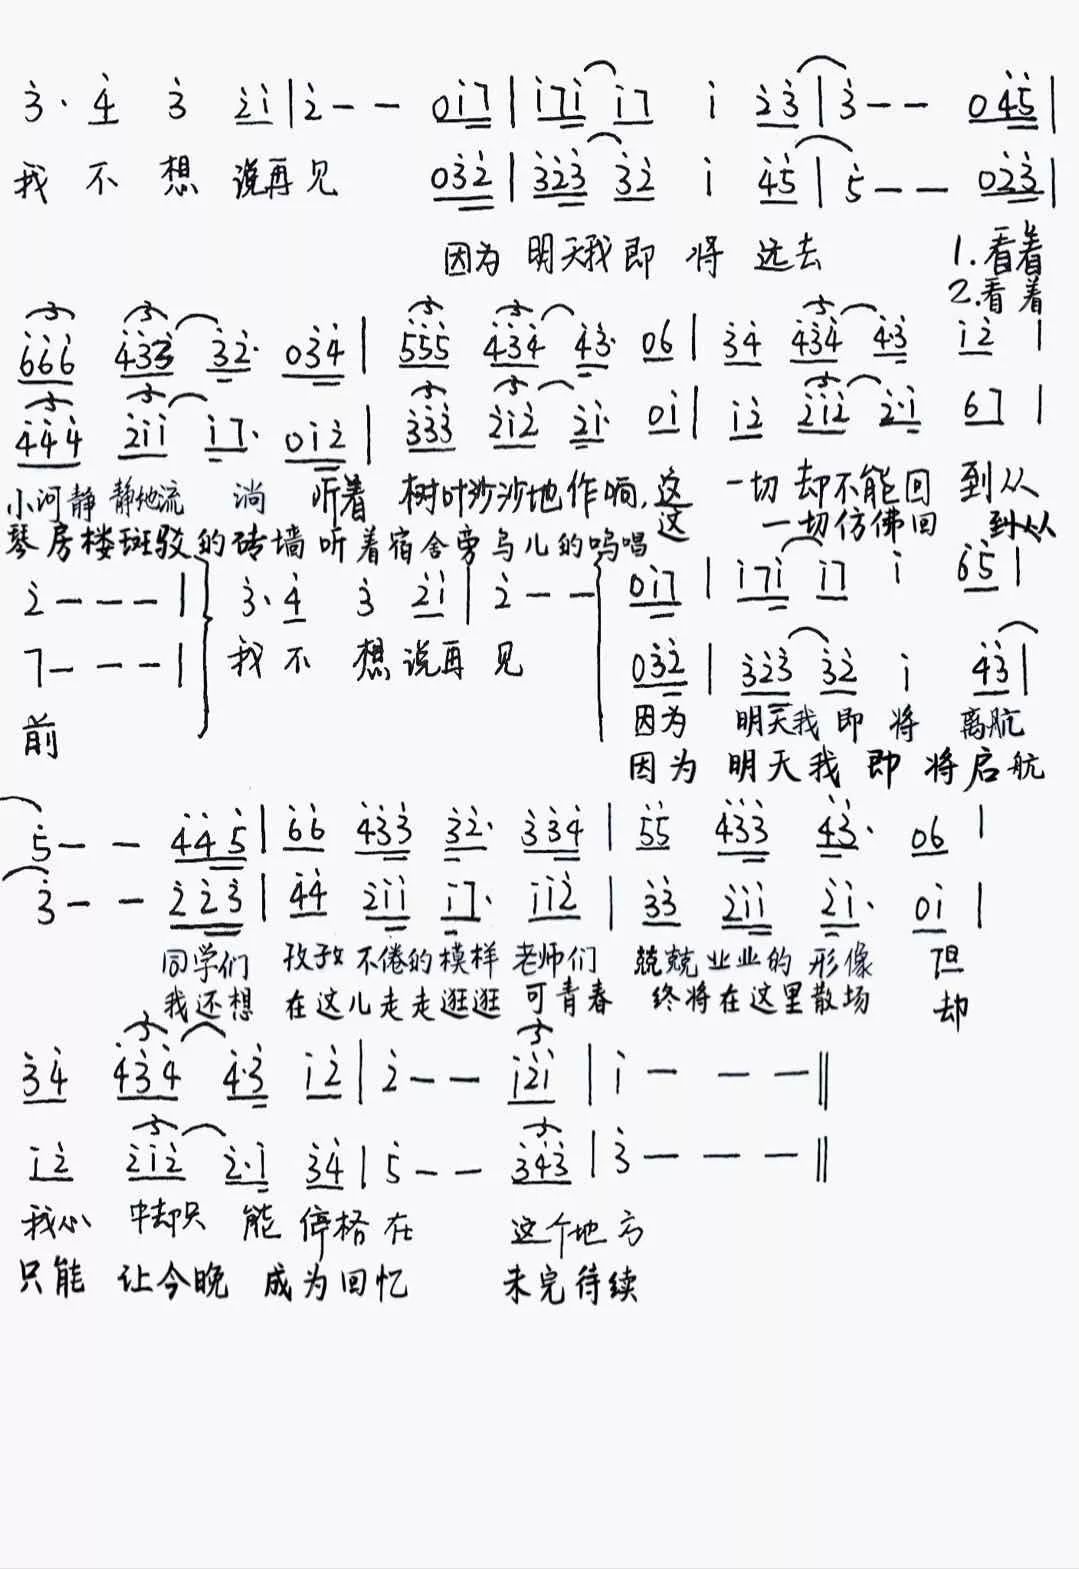 3̇· 4̇ 3̇ 2̇1̇ | 2̇ — — 01̇7 | 1̇71̇ 1̇7 1̇ 2̇3̇ | 3̇ — — 04̇5̇ |
我 不 想 说再见 03̇2̇ | 3̇2̇3̇ 3̇2̇ 1̇ 4̇5̇ | 5̇ — — 02̇3̇ |
因为 明天我 即 将 远去 1.看着
2.看着
6̇6̇6̇ 4̇3̇3̇ 3̇2̇· 03̇4̇ | 5̇5̇5̇ 4̇3̇4̇ 4̇3̇· 06 | 3̇4̇ 4̇3̇4̇ 4̇·3̇ 1̇2̇ |
4̇4̇4̇ 2̇1̇1̇ 1̇7· 01̇2̇ | 3̇3̇3̇ 2̇1̇2̇ 2̇1̇· 01̇ | 1̇2̇ 2̇1̇2̇ 2̇·1̇ 67 |
小河静 静地流 淌 听着 树叶沙沙地作响,这 一切 却不能回 到从
琴房楼斑驳的砖墙 听着宿舍旁鸟儿的鸣唱 这 一切仿佛回 到从
2̇ — — — | 3̇· 4̇ 3̇ 2̇1̇ | 2̇ — — 01̇7 | 1̇71̇ 1̇7 1̇ 65̇ |
7 — — — | 我 不 想 说再 见 03̇2̇ | 3̇2̇3̇ 3̇2̇ 1̇ 4̇3̇ |
前 因为 明天我 即 将 离航
因为 明天我 即 将启航
5̇ — — 4̇4̇5̇ | 6̇6̇ 4̇3̇3̇ 3̇2̇· 3̇3̇4̇ | 5̇5̇ 4̇3̇3̇ 4̇3̇· 06 |
3̇ — — 2̇2̇3̇ | 4̇4̇ 2̇1̇1̇ 1̇7· 1̇1̇2̇ | 3̇3̇ 2̇1̇1̇ 2̇1̇· 01̇ |
同学们 孜孜 不倦的模样 老师们 兢兢业业的 形像 但
我还想 在这儿走走逛逛 可青春 终将在这里散场 却
3̇4̇ 4̇3̇4̇ 4̇·3̇ 1̇2̇ | 2̇ — — 1̇2̇1̇ | 1̇ — — — ‖
1̇2̇ 2̇1̇2̇ 2̇·1̇ 3̇4̇ | 5̇ — — 3̇4̇3̇ | 3̇ — — — ‖
我心 中却只 能 停格 在 这个地方
只能 让今晚 成为回忆 未完待续